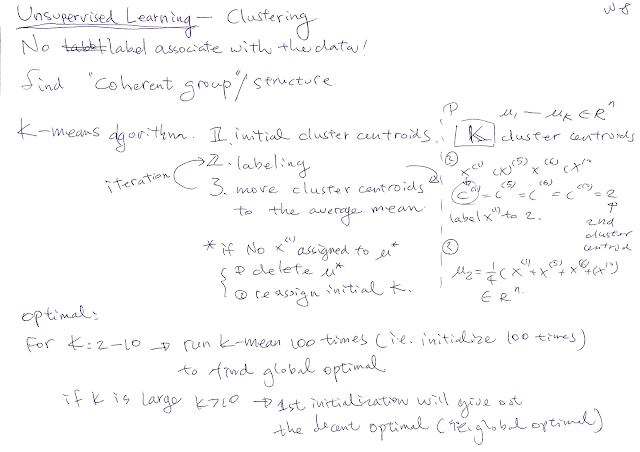 Unsupervised Learning — Clustering
W-8
No label associate with the data!
find "coherent group"/structure.
K-means algorithm. 1. initial cluster centroids.
iteration 2. labeling
3. move cluster centroids
to the average mean.
* if No x⁽ⁱ⁾ assigned to μ*
① delete μ*
② reassign initial k.
① μ₁ — μₖ ∈ Rⁿ
K cluster centroids
② x⁽¹⁾ x⁽⁵⁾ x⁽⁶⁾ x⁽¹⁰⁾
c⁽¹⁾ = c⁽⁵⁾ = c⁽⁶⁾ = c⁽¹⁰⁾ = 2
label x⁽¹⁾ to 2.
2nd
cluster
centroid
③
μ₂ = 1/4 (x⁽¹⁾ + x⁽⁵⁾ + x⁽⁶⁾ + x⁽¹⁰⁾)
∈ Rⁿ.
optimal:
For K: 2-10 → run k-mean 100 times (i.e. initialize 100 times)
to find global optimal
if k is large k>10 → 1st initialization will give out
the decent optimal (global optimal)